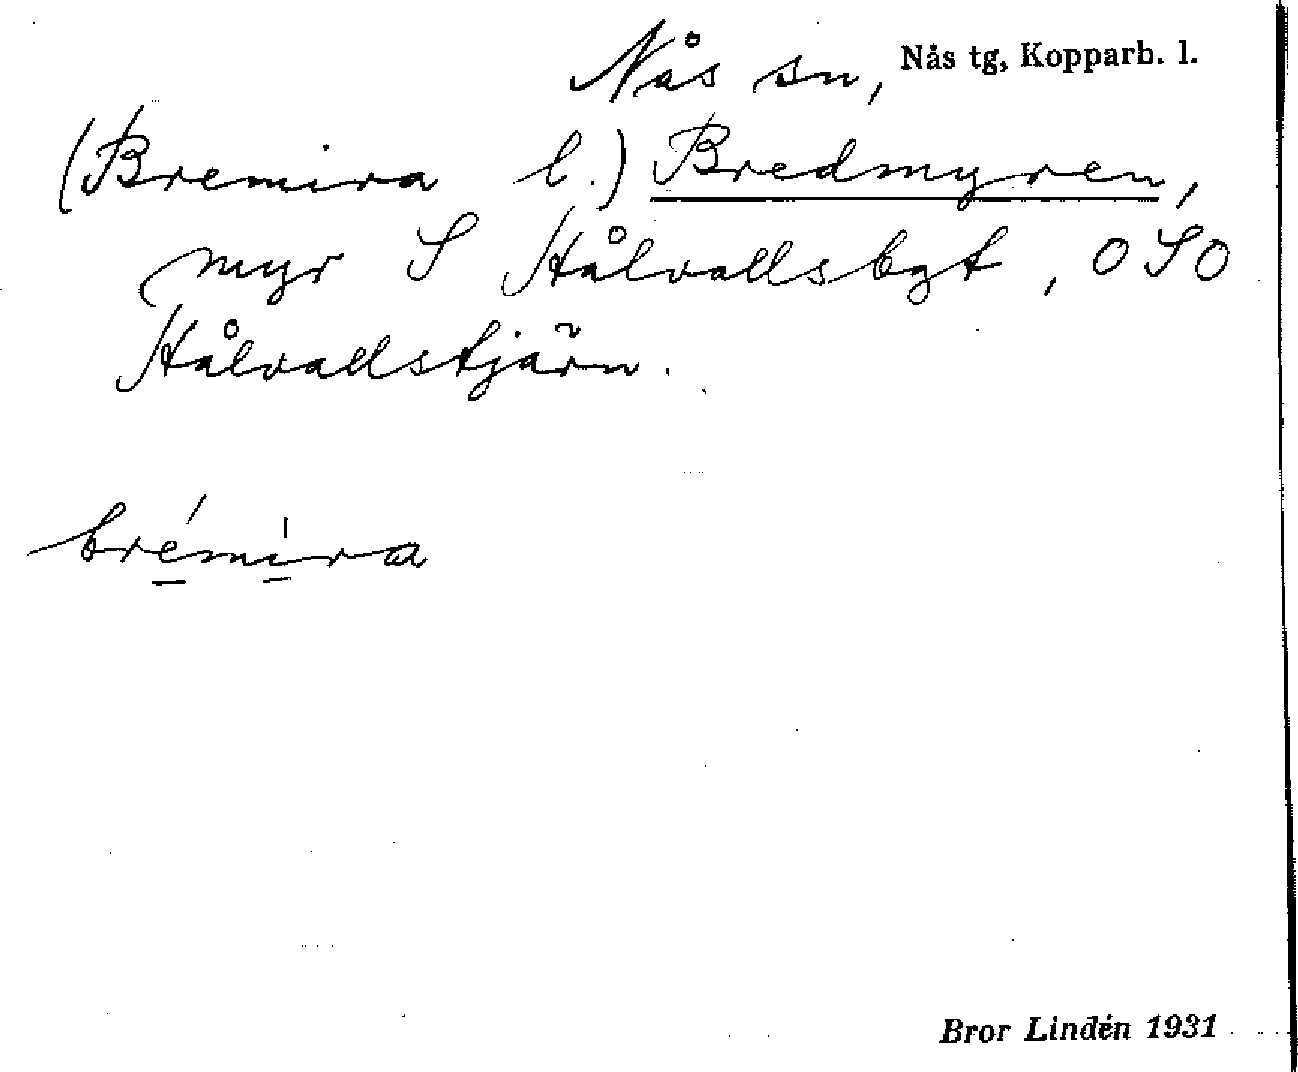 Nås sn, Nås tg, Kopparb. l.
(Bremira l.) Bredmyren,
myr S Stålvallsbgt, OSO
Stålvallstjärn.
bremira
Bror Lindén 1931